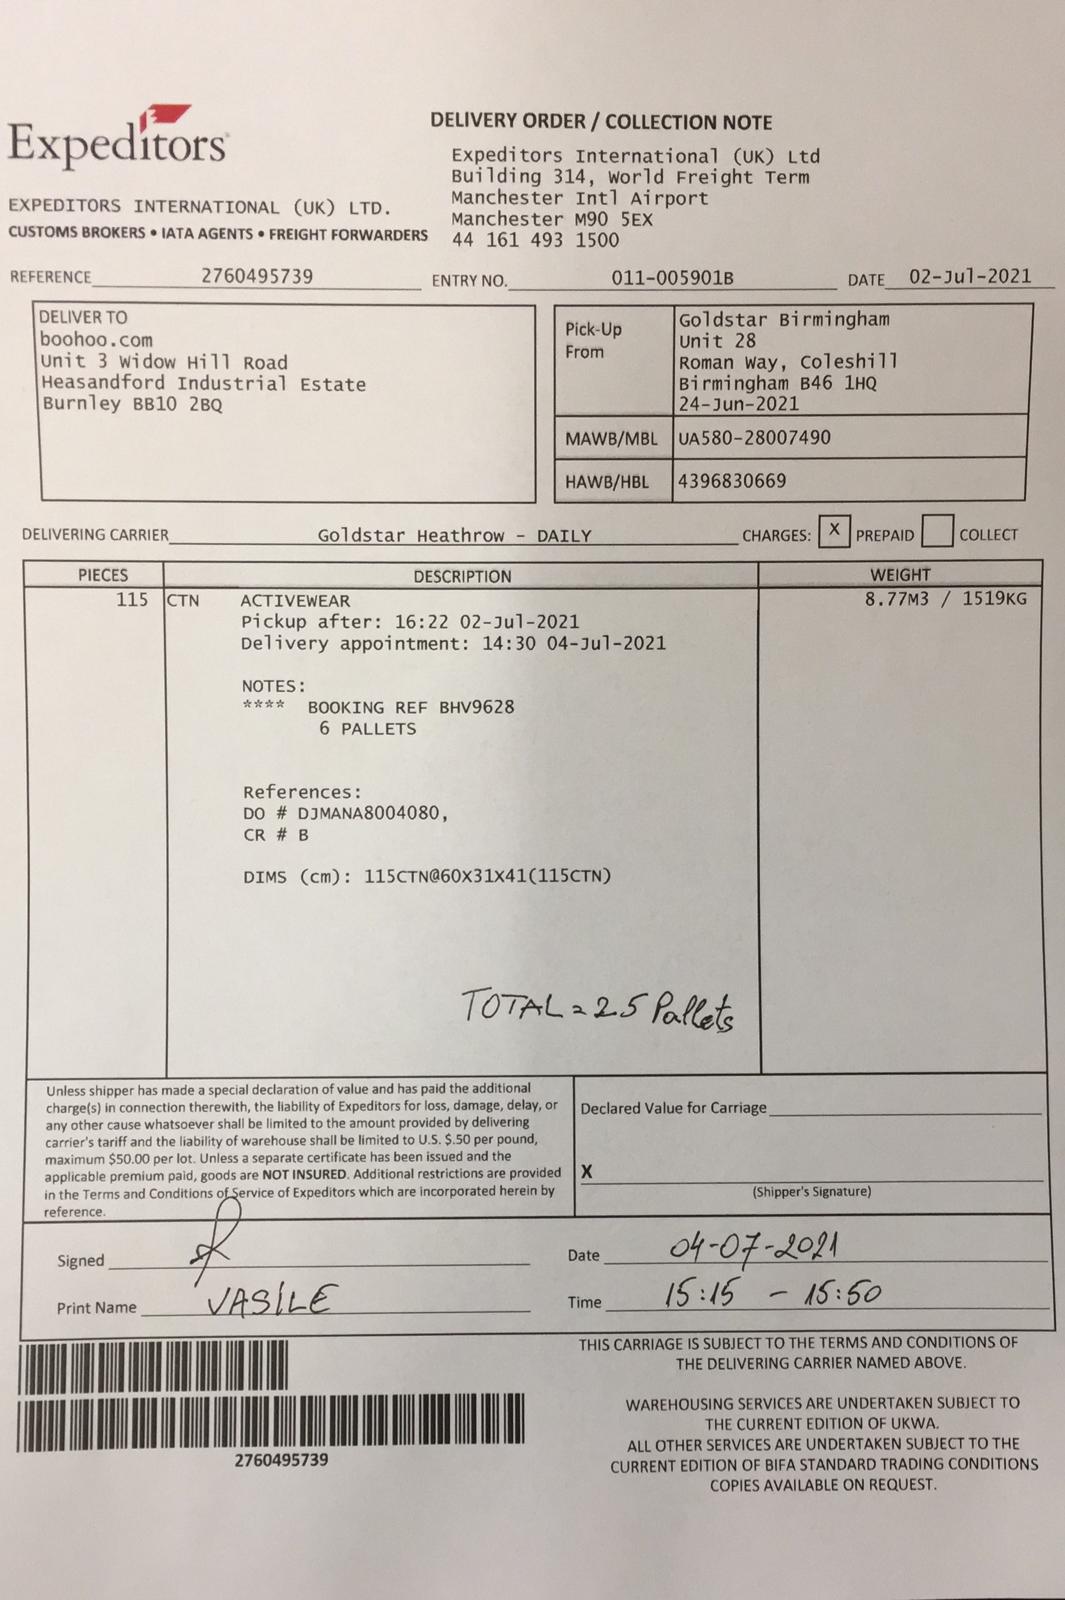 Expeditors
EXPEDITORS INTERNATIONAL (UK) LTD.
CUSTOMS BROKERS • IATA AGENTS • FREIGHT FORWARDERS
DELIVERY ORDER / COLLECTION NOTE
Expeditors International (UK) Ltd
Building 314, World Freight Term
Manchester Intl Airport
Manchester M90 5EX
44 161 493 1500
REFERENCE 2760495739 ENTRY NO. 011-005901B DATE 02-Jul-2021
DELIVER TO
boohoo.com
Unit 3 Widow Hill Road
Heasandford Industrial Estate
Burnley BB10 2BQ
Pick-Up
From
Goldstar Birmingham
Unit 28
Roman Way, Coleshill
Birmingham B46 1HQ
24-Jun-2021
MAWB/MBL UA580-28007490
HAWB/HBL 4396830669
DELIVERING CARRIER Goldstar Heathrow - DAILY CHARGES: X PREPAID COLLECT
PIECES DESCRIPTION WEIGHT
115 CTN ACTIVEWEAR 8.77M3 / 1519KG
Pickup after: 16:22 02-Jul-2021
Delivery appointment: 14:30 04-Jul-2021
NOTES:
**** BOOKING REF BHV9628
6 PALLETS
References:
DO # DJMANA8004080,
CR # B
DIMS (cm): 115CTN@60X31X41(115CTN)
TOTAL = 25 Pallets
Unless shipper has made a special declaration of value and has paid the additional
charge(s) in connection therewith, the liability of Expeditors for loss, damage, delay, or
any other cause whatsoever shall be limited to the amount provided by delivering
carrier's tariff and the liability of warehouse shall be limited to U.S. $.50 per pound,
maximum $50.00 per lot. Unless a separate certificate has been issued and the
applicable premium paid, goods are NOT INSURED. Additional restrictions are provided
in the Terms and Conditions of Service of Expeditors which are incorporated herein by
reference.
Declared Value for Carriage
X
(Shipper's Signature)
Signed
Date 04-07-2021
Print Name VASILE
Time 15:15 - 15:50
2760495739
THIS CARRIAGE IS SUBJECT TO THE TERMS AND CONDITIONS OF
THE DELIVERING CARRIER NAMED ABOVE.
WAREHOUSING SERVICES ARE UNDERTAKEN SUBJECT TO
THE CURRENT EDITION OF UKWA.
ALL OTHER SERVICES ARE UNDERTAKEN SUBJECT TO THE
CURRENT EDITION OF BIFA STANDARD TRADING CONDITIONS
COPIES AVAILABLE ON REQUEST.